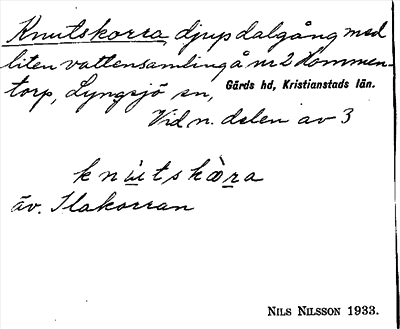 Knutskorra, djup dalgång med
liten vattensamling å nr 2 Kommen-
torp, Lyngsjö sn, Gärds hd, Kristianstads län.
Vid n. delen av 3
knùtskòra
äv. Ilakorran
NILS NILSSON 1933.